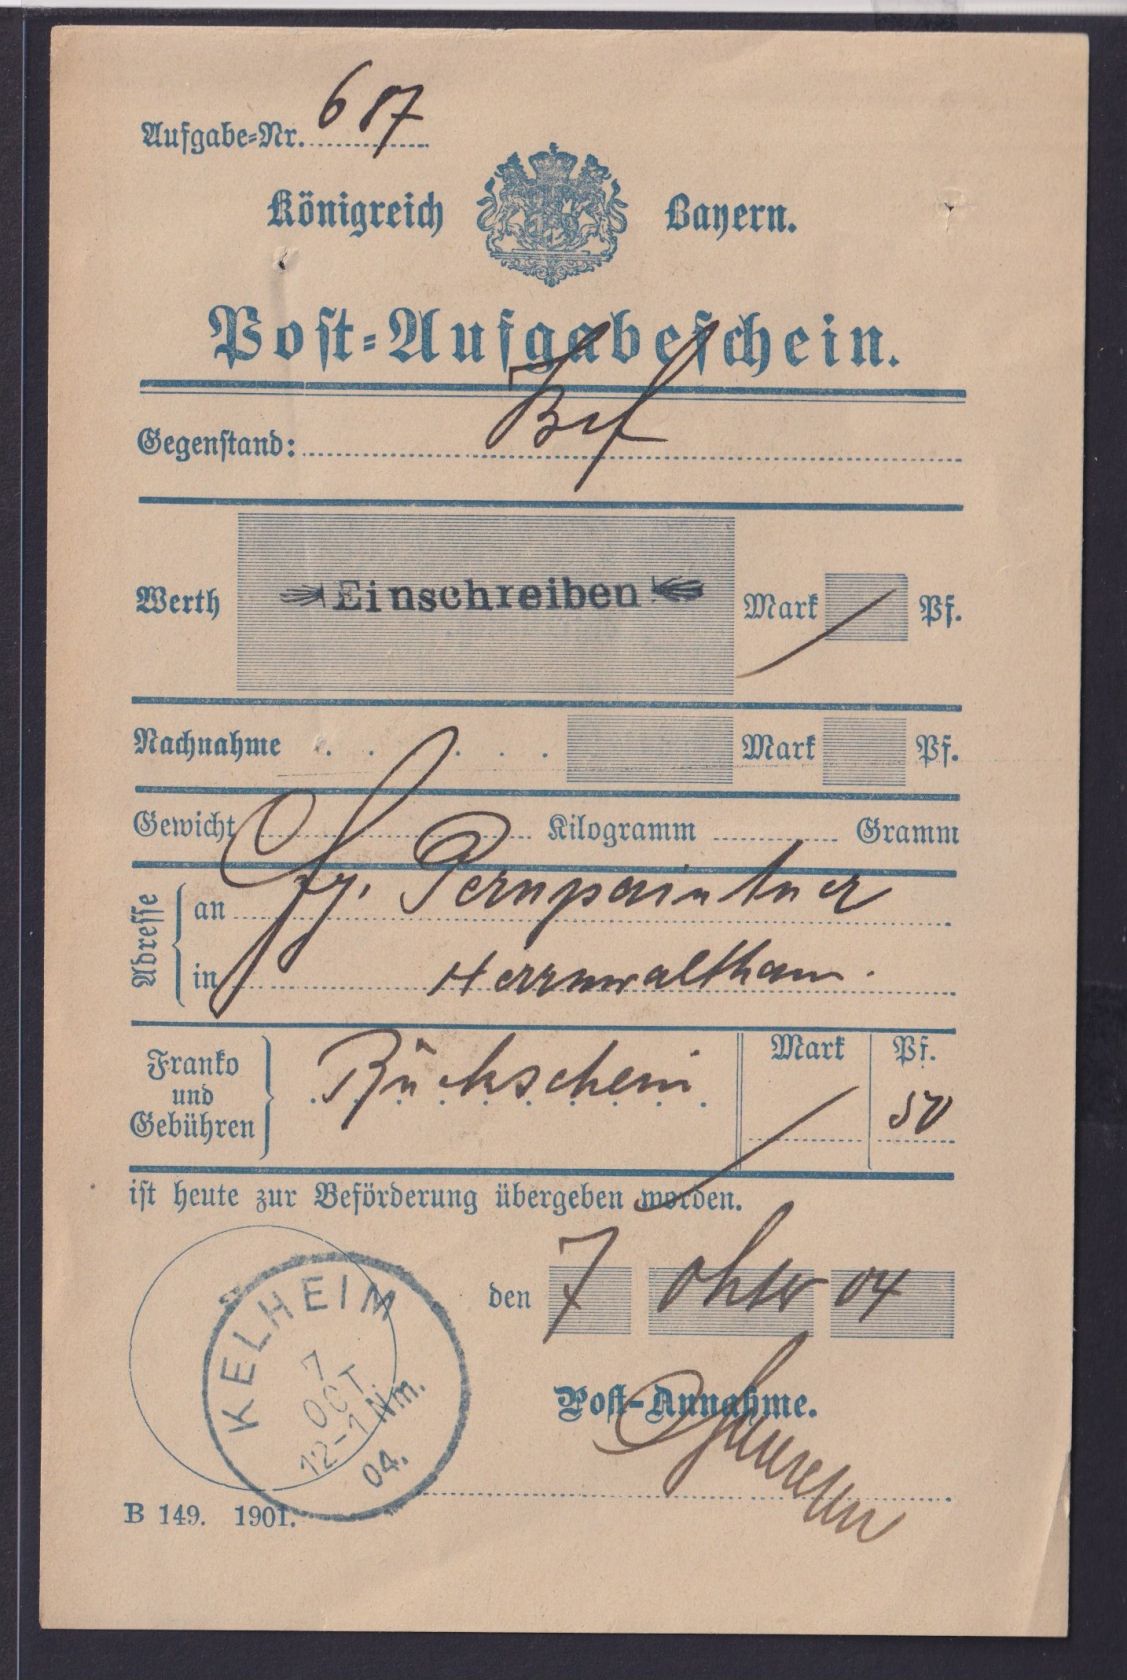 Aufgabe=Nr. 687
Königreich Bayern.
Post=Aufgabeschein.
Gegenstand: Brf
Werth Einschreiben Mark Pf.
Nachnahme . . . . . Mark Pf.
Gewicht Kilogramm Gramm
Adresse
an Pernpaintner
in Herrnwalthann.
Franko und Gebühren
Rückschein
Mark Pf.
50
ist heute zur Beförderung übergeben worden.
den 7 Okter 04
KELHEIM
7
OCT
12-1 Nm.
04.
Post-Annahme.
B 149. 1901.